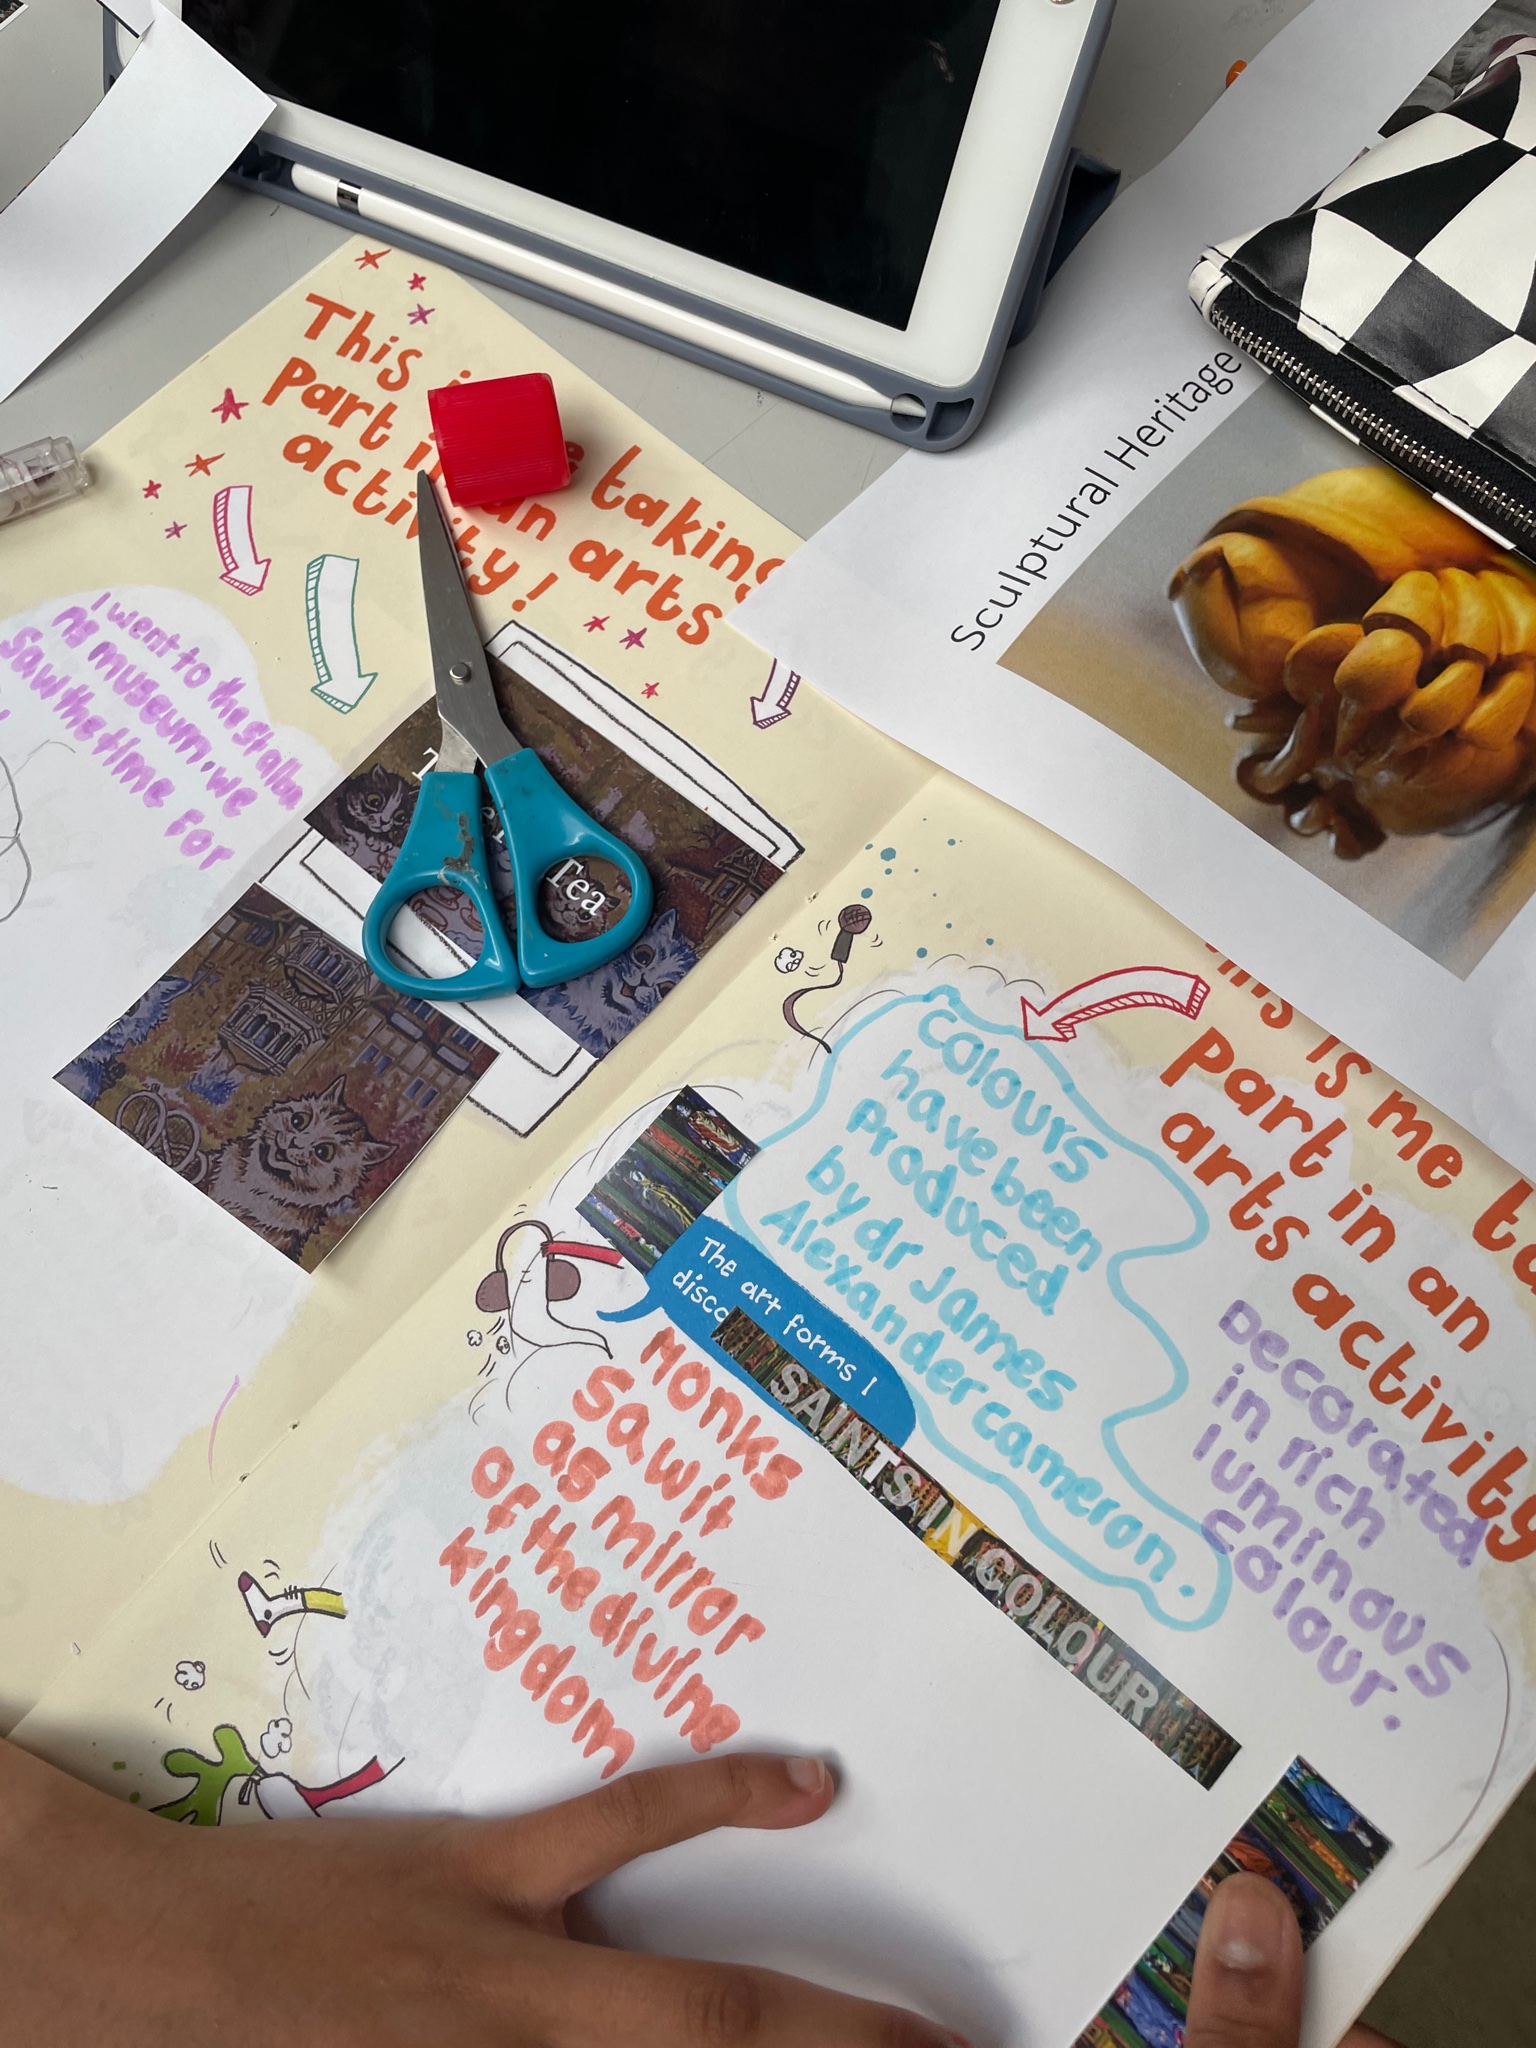 This is taking
Part in an arts
activity!
I went to the st alba
ns museum. we
saw the time for
Tea
Sculptural Heritage
This is me ta
Part in an
arts activity
colours
have been
Produced
by dr James
Alexander cameron.
The art forms I
disco
SAINTS IN COLOUR
Decorated
in rich
luminous
colour.
Monks
saw it
as mirror
of the divine
kingdom